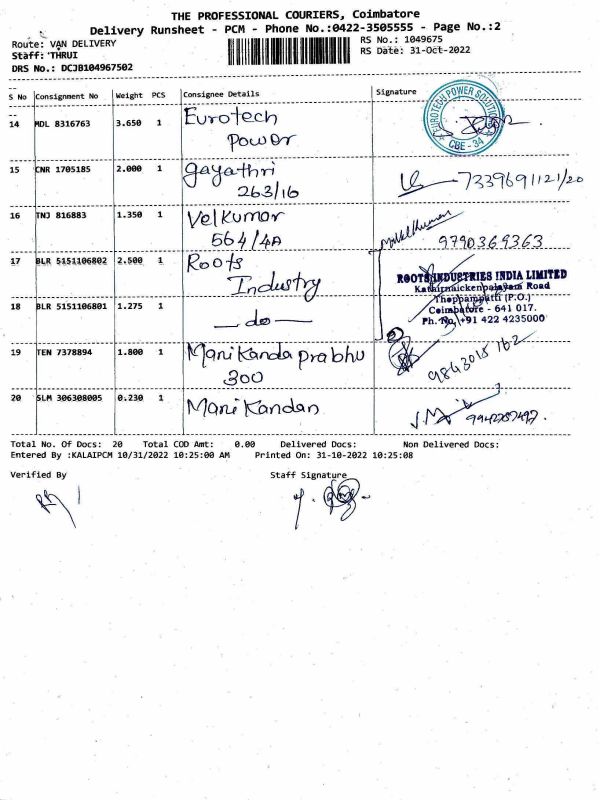 THE PROFESSIONAL COURIERS, Coimbatore
Delivery Runsheet - PCM - Phone No.:0422-3505555 - Page No.:2
Route: VAN DELIVERY
RS No.: 1049675
Staff: THRUI
RS Date: 31-Oct-2022
DRS No.: DCJB104967502
S No Consignment No Weight PCS Consignee Details Signature
14 MDL 8316763 3.650 1 Eurotech
Power
EUROTECH POWER SOLUTIONS
CBE - 34
15 CNR 1705185 2.000 1 gayathri
263/16
7339691121/20
16 TNJ 816883 1.350 1 Velkumar
564/4A
9790369363
17 BLR 5151106802 2.500 1 Roots
Industry
ROOTS INDUSTRIES INDIA LIMITED
Kathirnaickenpalayam Road
Thoppampatti (P.O.)
Coimbatore - 641 017.
Ph. No. +91 422 4235000
18 BLR 5151106801 1.275 1 — do —
19 TEN 7378894 1.800 1 Manikanda prabhu
300
9843015162
20 SLM 306308005 0.230 1 Manikandan
Total No. Of Docs: 20 Total COD Amt: 0.00 Delivered Docs: Non Delivered Docs:
Entered By :KALAIPCM 10/31/2022 10:25:00 AM Printed On: 31-10-2022 10:25:08
Verified By Staff Signature